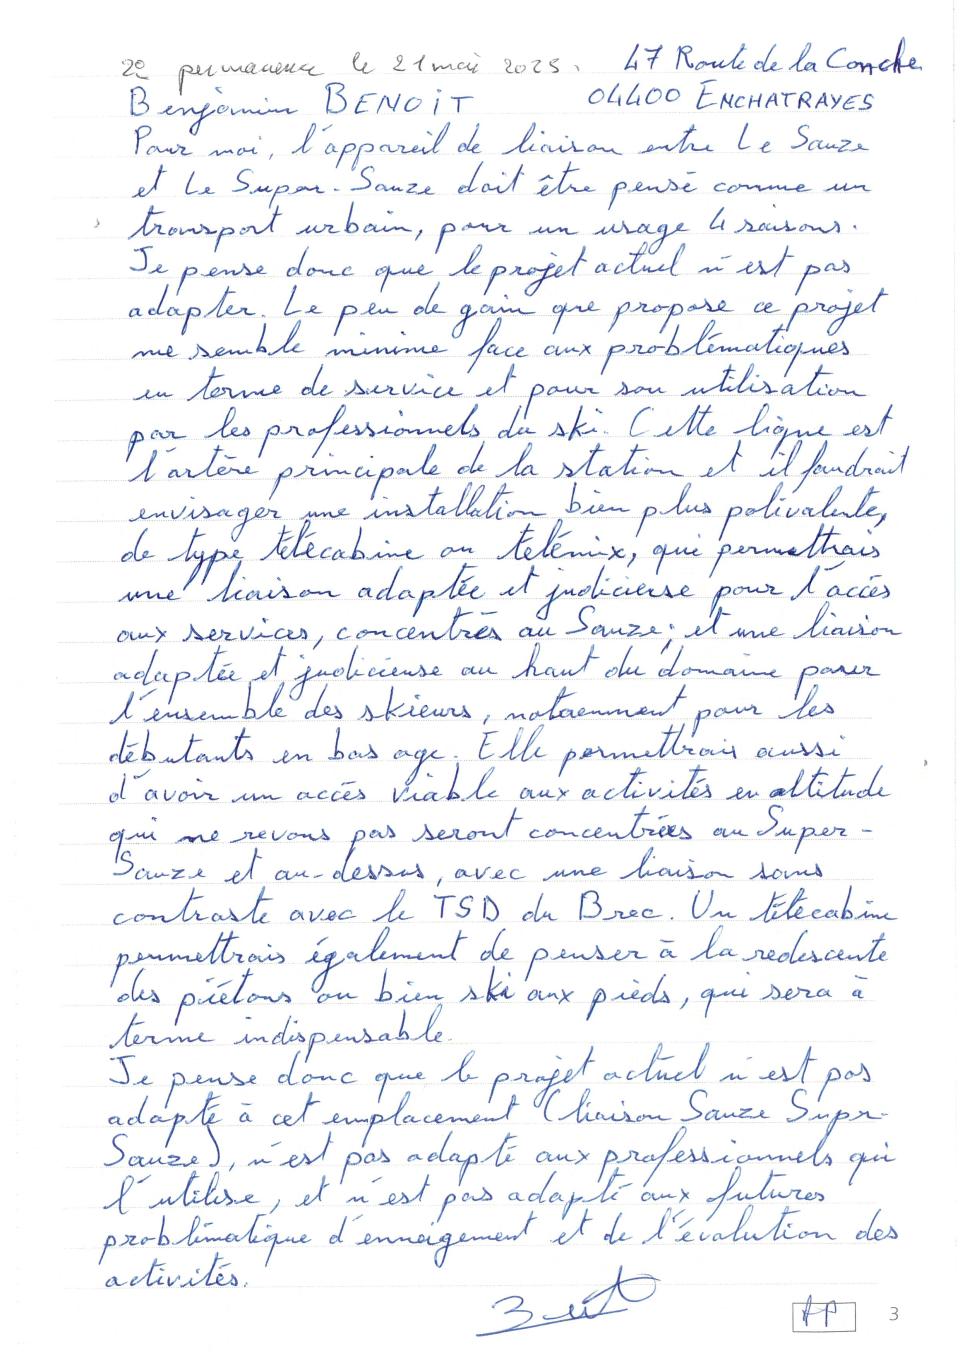 2e permanence le 21 mai 2025. 47 Route de la Conche
Benjamin BENOIT 04400 ENCHATRAYES
Pour moi, l'appareil de liaison entre Le Sauze
et Le Super-Sauze doit être pensé comme un
transport urbain, pour un usage 4 saisons.
Je pense donc que le projet actuel n'est pas
adapter. Le peu de gain que propose ce projet
me semble minime face aux problématiques
en terme de service et pour son utilisation
par les professionnels du ski. Cette ligne est
l'artère principale de la station et il faudrait
envisager une installation bien plus polivalente,
de type télécabine ou télémix, qui permettrais
une liaison adaptée et judicieuse pour l'accés
aux services, concentrés au Sauze; et une liaison
adaptée et judicieuse au haut du domaine pour
l'ensemble des skieurs, notaemment pour les
débutants en bas age. Elle permettrais aussi
d'avoir un accés viable aux activités en altitude
qui ne revons pas seront concentrées au Super-
Sauze et au-dessus, avec une liaison sans
contraste avec le TSD du Brec. Un télécabine
permettrais également de penser à la redescente
des piétons ou bien ski aux pieds, qui sera à
terme indispensable.
Je pense donc que le projet actuel n'est pas
adapté à cet emplacement (liaison Sauze Supr-
Sauze), n'est pas adapté aux professionnels qui
l'utilise, et n'est pas adapté aux futures
problématique d'enneigement et de l'évolution des
activités.
AP 3